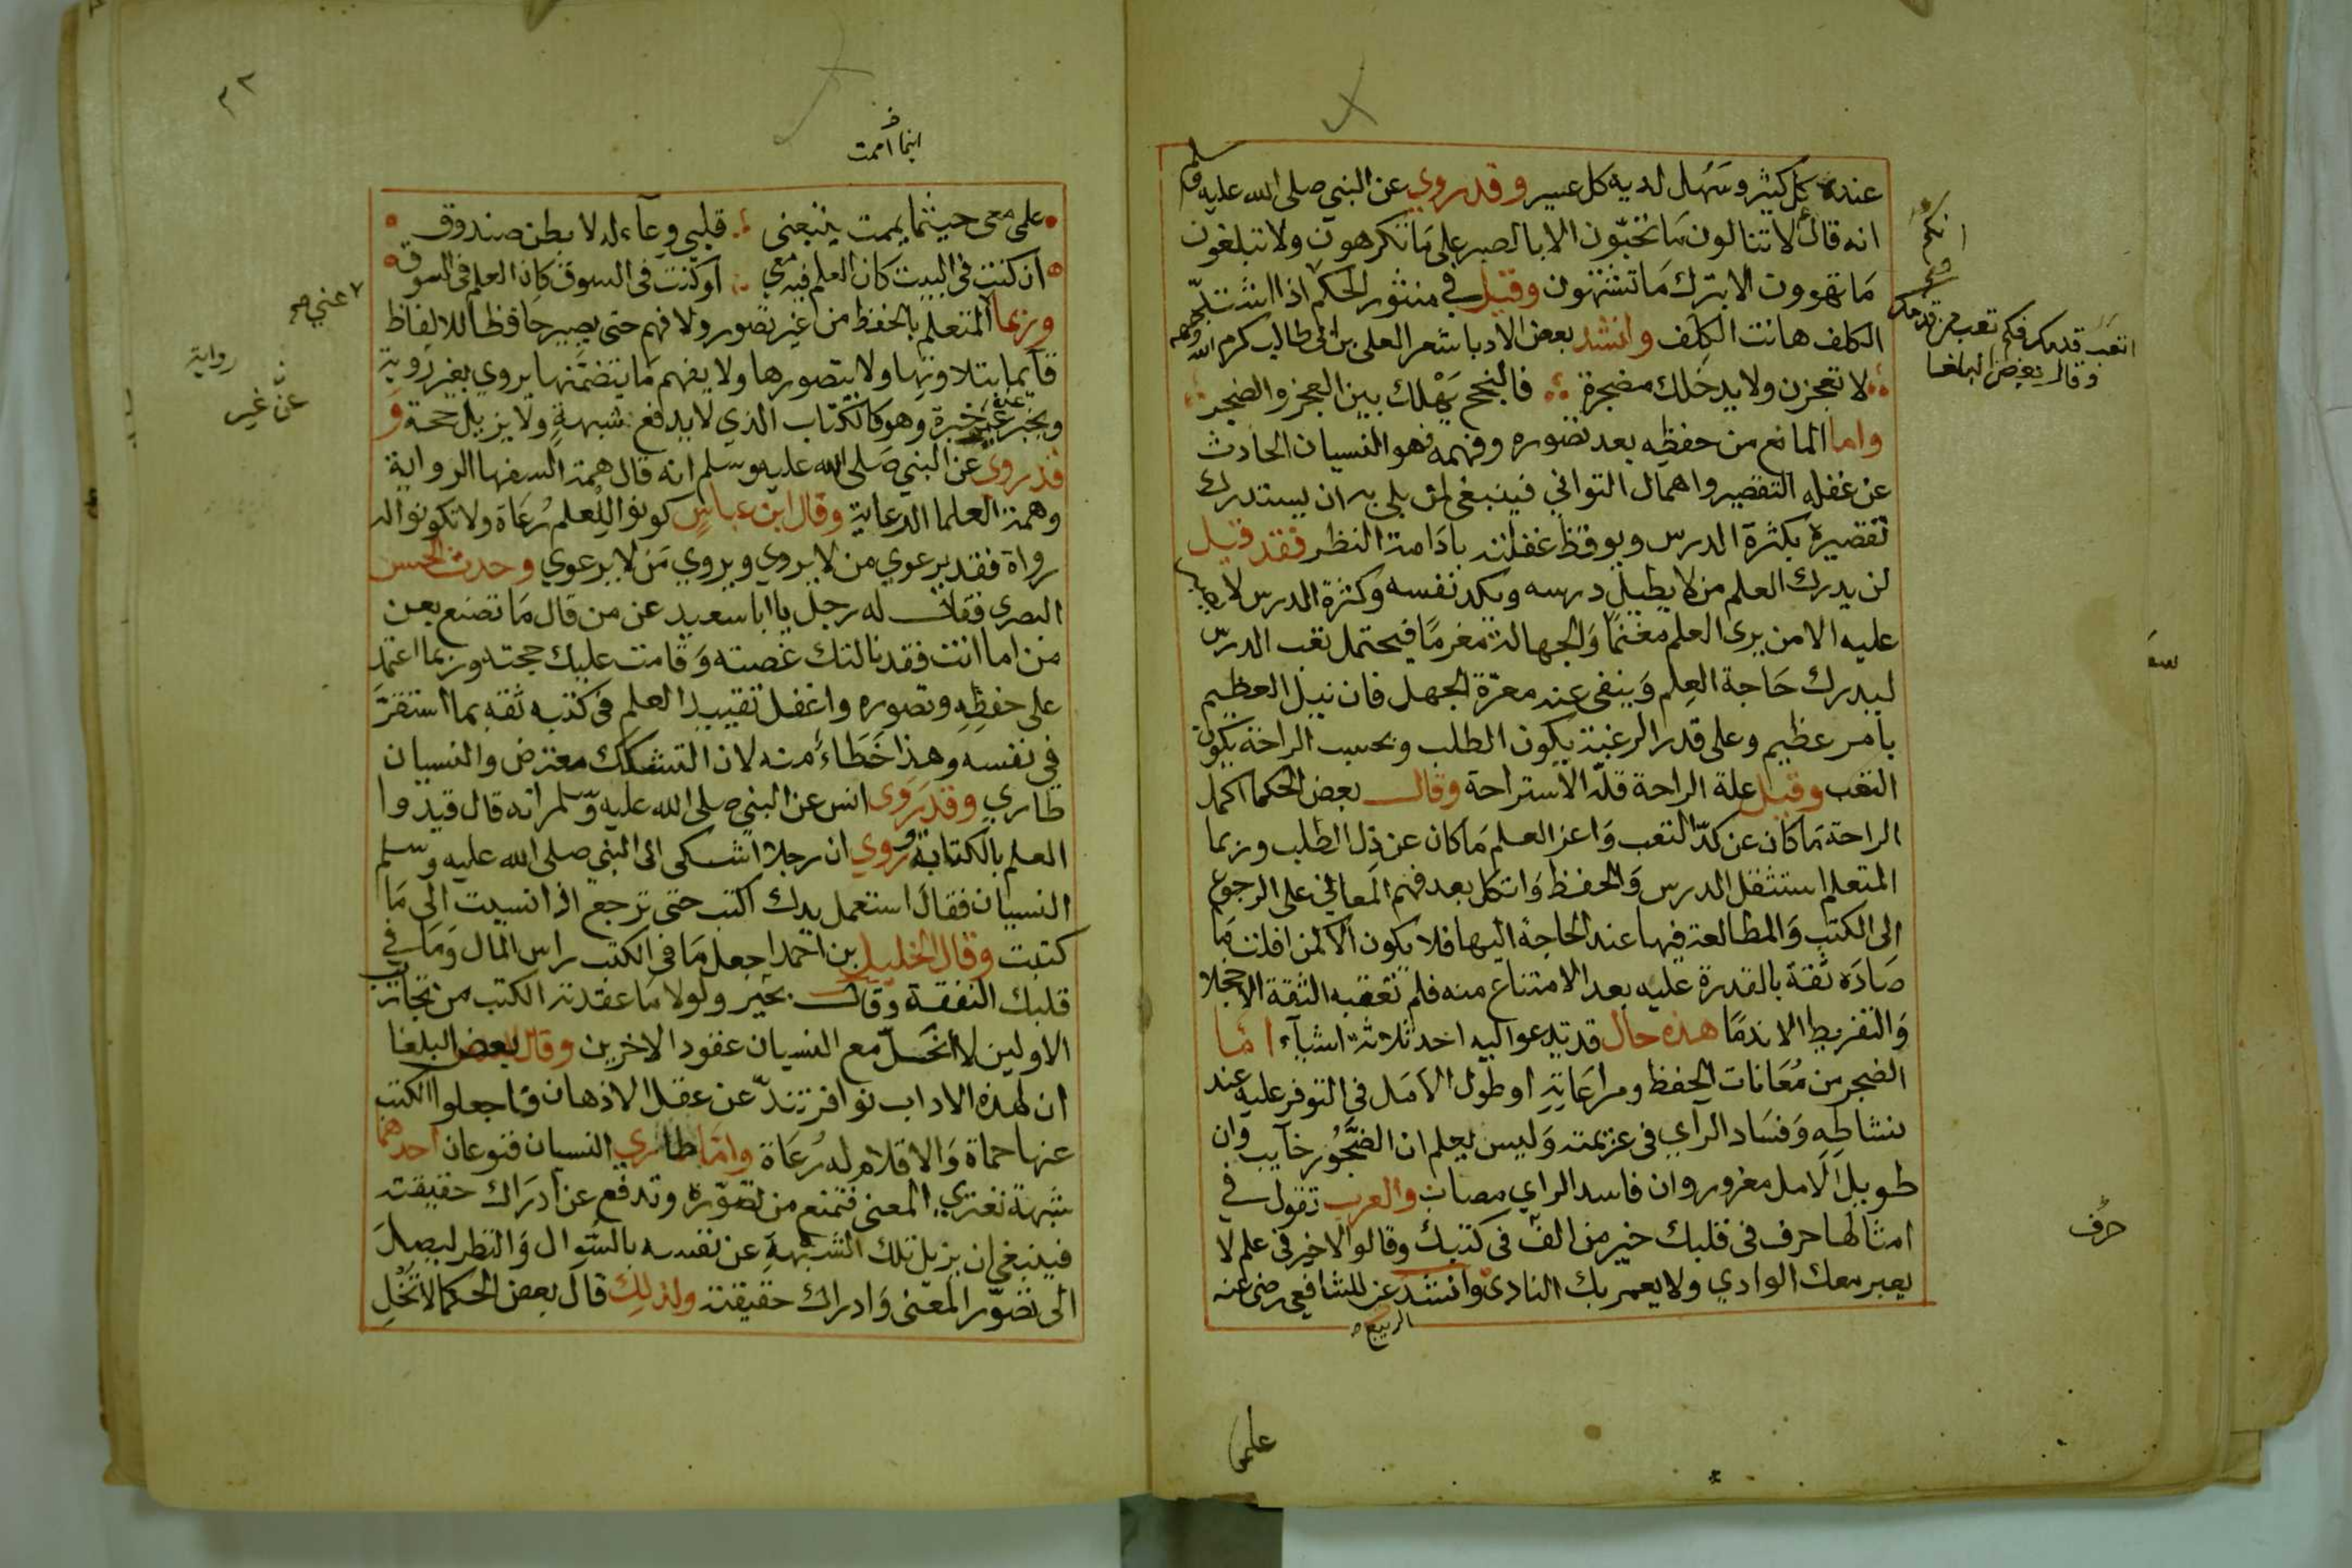 عنده كل كثير وسهل لديه كل عسير وقد روي عن النبي صلى الله عليه وسلم
انه قال لا تنالون ما تحبّون الا بالصبر على ما تكرهون ولا تبلغون
ما تهوون الا بترك ما تشتهون وقيل في منثور الحكم اذا اشتد
الكلف هانت الكلف وانشد بعض الادبا شعر العلى بن ابى طالب كرم الله وجهه
لا تعجزن ولا يدخلك مضجرة فالنجح يهلك بين العجز والضجر
واما المانع من حفظه بعد تصوره وفهمه فهو النسيان الحادث
عن غفله التقصير واهمال التواني فينبغى لمن بلى به ان يستدرك
تقصيره بكثرة الدرس ويوقظ غفلته بادامة النظر فقد قيل
لن يدرك العلم من لا يطيل درسه ويكد نفسه وكثرة الدرس لا
عليه الا من يرى العلم مغنمًا والجهالة مغرمًا فيحتمل تعب الدرس
ليدرك حاجة العلم وينفى عنه معرّة الجهل فان نيل العظيم
بامر عظيم وعلى قدر الرغبة يكون الطلب وبحسب الراحة يكون
التعب وقيل علة الراحة قلة الاستراحة وقال بعض الحكما اكمل
الراحة ما كان عن كدّ التعب واعز العلم ما كان عن ذل الطلب وربما
المتعلم استثقل الدرس والحفظ واتكل بعد فهم المعاني على الرجوع
الى الكتب والمطالعة فيها عند الحاجة اليها فلا يكون الا كمن افلت ما
صاده ثقة بالقدرة عليه بعد الامتناع منه فلم تعقبه الثقة الا خجلا
والتفريط الا ندما هذه حال قد تدعو اليه احد ثلاثة اشيآء اما
الضجر من معانات الحفظ ومراعاته او طول الامل في التوفر عليه عند
نشاطه وفساد الرأي فى عزيمته وليس يعلم ان الضجور خآيب وان
طويل الامل مغرور وان فاسد الراي مصاب والعرب تقول في
امثالها حرف فى قلبك خير من الف فى كتبك وقالوا لا خير فى علم لا
يعبر معك الوادي ولا يعمر بك النادى وانشد عن للشافعي رضى عنه
الربيع
اتعب قدمك فكم تعب من قدمك
وقال بعض البلغا
حرف
علمى
٢٢
اينما اممت
على معى حيثما يممت ينبعنى قلبى وعآء له لا بطن صندوق
ان كنت فى البيت كان العلم فيه معي او كنت فى السوق كان العلم فى السوق
وربما المتعلم بالحفظ من غير تصور ولا فهم حتى يصير حافظا للالفاظ
قآيما بتلاوتها ولا يتصورها ولا يفهم ما يتضمنها يروي بغير روية
ويخبر عن غير خبرة وهو كالكتاب الذي لا يدفع شبهة ولا يزيل حجة و
قد روى عن النبي صلى الله عليه وسلم انه قال همة السفها الرواية
وهمة العلما الدعاية وقال ابن عباس كونوا للعلم رعاة ولا تكونوا له
رواة فقد يرعوي من لا يروي ويروي من لا يرعوي وحدث الحسن
البصرى فقال له رجل يا ابا سعيد عن من قال ما تصنع بعن
من اما انت فقد نالتك غصته وقامت عليك حجته وربما اعتمد
على حفظه وتصوره واغفل تقييد العلم فى كتبه ثقه بما استقرّ
في نفسه وهذا خطاء منه لان التشكك معترض والنسيان
طاري وقد روى انس عن النبي صلى الله عليه وسلم انه قال قيدوا
العلم بالكتابة وروي ان رجلا اشتكى الى النبي صلى الله عليه وسلم
النسيان فقال استعمل يدك اكتب حتى ترجع اذا نسيت الى ما
كتبت وقال الخليل بن احمد اجعل ما فى الكتب راس المال وما في
قلبك النفقة وقال ولولا ما عقدته الكتب من تجارب
الاولين لانحل مع النسيان عقود الاخرين وقال بعض البلغا
ان لهذه الاداب نوافر تندّ عن عقل الاذهان فاجعلوا الكتب
عنها حماة والاقلام له رعاة واما طاري النسيان فنوعان احدهما
شبهة تعتري المعنى فتمنع من تصوره وتدفع عن ادراك حقيقته
فينبغي ان يزيل تلك الشبهة عن نفسه بالسؤال والنظر ليصل
الى تصوّر المعنى وادراك حقيقته ولذلك قال بعض الحكما لا تخل
عني صح
رواية
عن غير